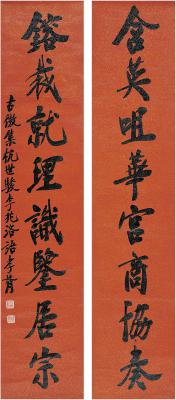 含英咀華宮商協奏
鎔裁就理識鑒居宗
古微集杭世駿李兆洛語 孝胥